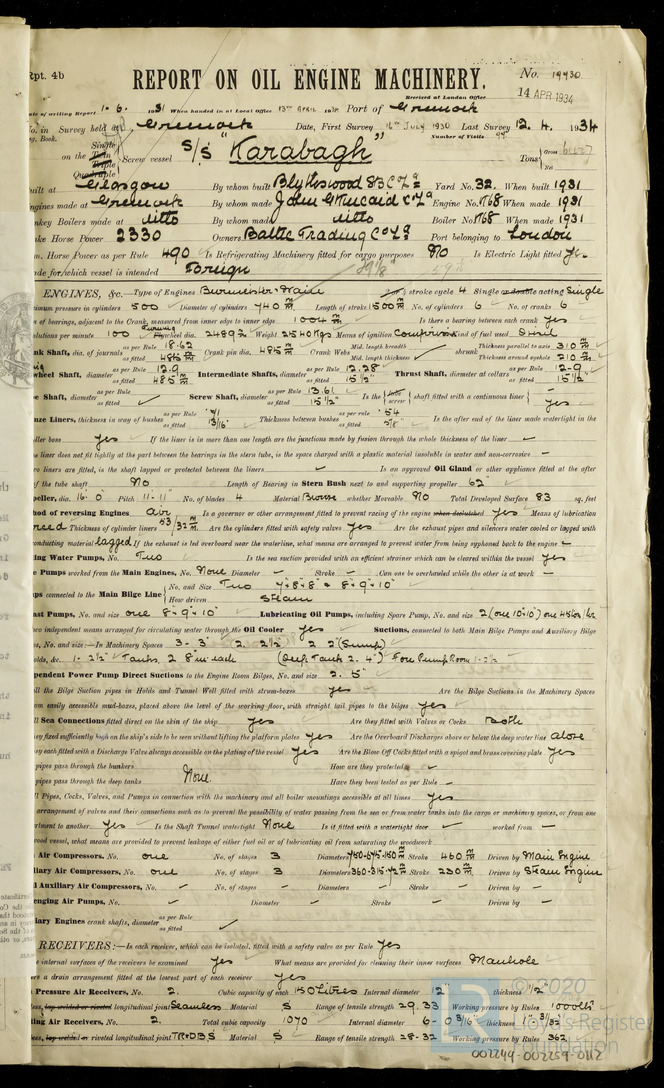 Rpt. 4b
REPORT ON OIL ENGINE MACHINERY.
No. 19430
Received at London Office
14 APR 1934
Date of writing Report 1. 6. 1931 When handed in at Local Office 13TH APRIL Port of Greenock
No. in Survey held at Greenock Date, First Survey 16th July 1930 Last Survey 12. 4. 1934
Reg. Book. Number of Visits
Single
on the Twin Screw vessel S/S "Karabagh" Tons Gross
Triple
Quadruple
Built at Glasgow By whom built Blythswood SB Co Ld Yard No. 32. When built 1931
Engines made at Greenock By whom made John G Kincaid & Co Ld Engine No. K68 When made 1931
Donkey Boilers made at ditto By whom made ditto Boiler No. K68 When made 1931
Brake Horse Power 2330 Owners Baltic Trading Co Ld Port belonging to London
Nom. Horse Power as per Rule 490 Is Refrigerating Machinery fitted for cargo purposes No Is Electric Light fitted Yes
Trade for which vessel is intended Foreign
ENGINES, &c. Type of Engines Burmeister & Wain 2 or 4 stroke cycle 4 Single or double acting Single
Maximum pressure in cylinders 500 Diameter of cylinders 740 m/m Length of stroke 1500 m/m No. of cylinders 6 No. of cranks 6
Span of bearings, adjacent to the Crank, measured from inner edge to inner edge 1004 m/m Is there a bearing between each crank yes
Revolutions per minute 100 Flywheel dia. 2489 m/m Weight 2540 Kgs Means of ignition Compression Kind of fuel used
Crank Shaft, dia. of journals as per Rule 18.62 as fitted 485 m/m Crank pin dia. 485 m/m Crank Webs Mid. length breadth Mid. length thickness shrunk Thickness parallel to axis 310 m/m Thickness around eyehole 210 m/m
Flywheel Shaft, diameter as per Rule 12.9 as fitted 485 m/m Intermediate Shafts, diameter as per Rule 12.28 as fitted 15 1/2" Thrust Shaft, diameter at collars as per Rule 12.9 as fitted 15 1/2"
Tube Shaft, diameter as per Rule as fitted Screw Shaft, diameter as per Rule 13.61 as fitted 15 1/2" Is the tube screw shaft fitted with a continuous liner yes
Bronze Liners, thickness in way of bushes as per Rule .71 as fitted 13/16" Thickness between bushes as per rule .54 as fitted 5/8" Is the after end of the liner made watertight in the
propeller boss yes If the liner is in more than one length are the junctions made by fusion through the whole thickness of the liner -
If the liner does not fit tightly at the part between the bearings in the stern tube, is the space charged with a plastic material insoluble in water and non-corrosive -
If two liners are fitted, is the shaft lapped or protected between the liners Is an approved Oil Gland or other appliance fitted at the after
end of the tube shaft No Length of Bearing in Stern Bush next to and supporting propeller 62"
Propeller, dia. 16'. 0" Pitch 11'. 11" No. of blades 4 Material Bronze whether Moveable No Total Developed Surface 83 sq. feet
Method of reversing Engines Air Is a governor or other arrangement fitted to prevent racing of the engine when declutched yes Means of lubrication
forced Thickness of cylinder liners 53/32 m/m Are the cylinders fitted with safety valves yes Are the exhaust pipes and silencers water cooled or lagged with
non-conducting material lagged If the exhaust is led overboard near the waterline, what means are arranged to prevent water from being syphoned back to the engine -
Cooling Water Pumps, No. Two Is the sea suction provided with an efficient strainer which can be cleared within the vessel yes
Bilge Pumps worked from the Main Engines, No. None Diameter - Stroke - Can one be overhauled while the other is at work -
Pumps connected to the Main Bilge Line No. and Size Two 7 x 8 x 8 & 8 x 9 x 10"
How driven Steam
Ballast Pumps, No. and size one 8 x 9 x 10" Lubricating Oil Pumps, including Spare Pump, No. and size 2
Are two independent means arranged for circulating water through the Oil Cooler yes Suctions, connected to both Main Bilge Pumps and Auxiliary Bilge
Pumps, No. and size:—In Machinery Spaces 3 - 3" 2 2 1/2" 2 2" (Sump)
Holds, &c. 1 - 2 1/2" Tanks 2 8" in each (Deep Tank 2. 4") Fore Pump Room 1 - 2 1/2"
Independent Power Pump Direct Suctions to the Engine Room Bilges, No. and size 2. 5"
Are all the Bilge Suction pipes in Holds and Tunnel Well fitted with strum-boxes yes Are the Bilge Suctions in the Machinery Spaces
led from easily accessible mud-boxes, placed above the level of the working floor, with straight tail pipes to the bilges yes
Are all Sea Connections fitted direct on the skin of the ship yes Are they fitted with Valves or Cocks both
Are they fixed sufficiently high on the ship's side to be seen without lifting the platform plates yes Are the Overboard Discharges above or below the deep water line above
Are they each fitted with a Discharge Valve always accessible on the plating of the vessel yes Are the Blow Off Cocks fitted with a spigot and brass covering plate yes
What pipes pass through the bunkers How are they protected -
What pipes pass through the deep tanks None Have they been tested as per Rule -
Are all Pipes, Cocks, Valves, and Pumps in connection with the machinery and all boiler mountings accessible at all times yes
Is the arrangement of valves and their connections such as to prevent the possibility of water passing from the sea or from water tanks into the cargo or machinery spaces, or from one
compartment to another yes Is the Shaft Tunnel watertight None Is it fitted with a watertight door worked from -
If a wood vessel, what means are provided to prevent leakage of either fuel oil or of lubricating oil from saturating the woodwork
Main Air Compressors, No. one No. of stages 3 Diameters 780-675-150 m/m Stroke 460 m/m Driven by Main Engine
Auxiliary Air Compressors, No. one No. of stages 3 Diameters 360-315-72 m/m Stroke 230 m/m Driven by Steam Engine
Small Auxiliary Air Compressors, No. - No. of stages - Diameters - Stroke - Driven by -
Scavenging Air Pumps, No. Diameter - Stroke - Driven by -
Auxiliary Engines crank shafts, diameter as per Rule as fitted
AIR RECEIVERS:—Is each receiver, which can be isolated, fitted with a safety valve as per Rule yes
Can the internal surfaces of the receivers be examined yes What means are provided for cleaning their inner surfaces Manhole
Is there a drain arrangement fitted at the lowest part of each receiver yes
High Pressure Air Receivers, No. 2. Cubic capacity of each 150 Litres Internal diameter thickness 1/2"
Seamless, lap welded or riveted longitudinal joint Seamless Material S Range of tensile strength 29. 33 Working pressure by Rules
Starting Air Receivers, No. 2. Total cubic capacity 1070 Internal diameter 6 - 0 3/16" thickness 1 - 3/32"
Seamless, lap welded or riveted longitudinal joint TR DBS Material S Range of tensile strength 28 - 32 Working pressure by Rules 362
© 2020
Lloyd's Register
Foundation
002249-002259-0112